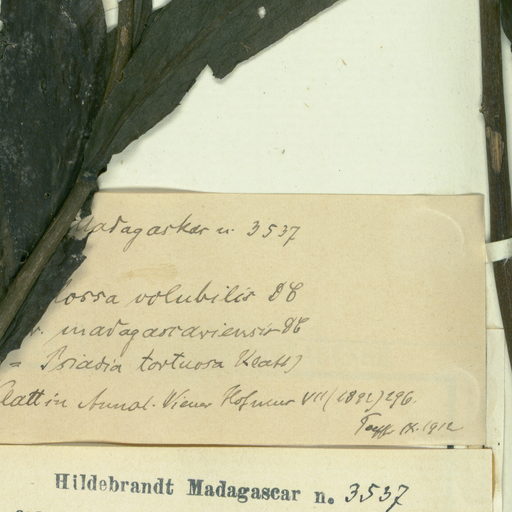 Madagaskar n. 3537
lossa volubilis DC
v. madagascariensis DC
= Psiadia tortuosa Klatt)
Klatt in Annal. Wiener Hofmus VII (1892) 296.
IX. 1912
Hildebrandt Madagascar n. 3537